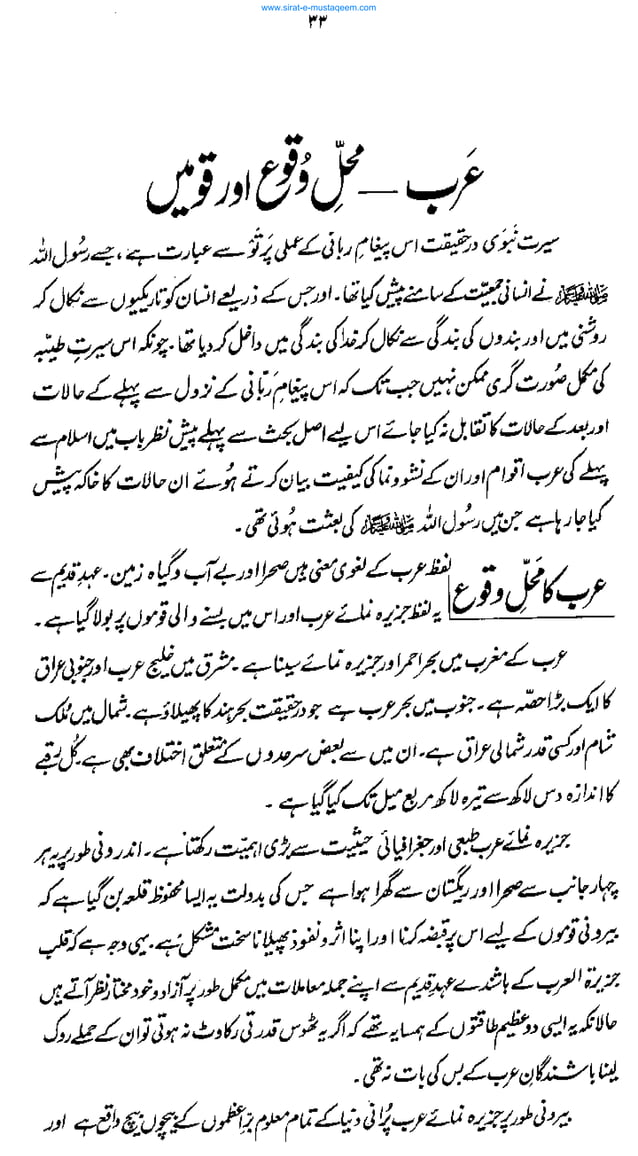 www.sirat-e-mustaqeem.com
۳۳
عَرب — محلِّ وُقوع اور قومیں
سیرت نبوی درحقیقت اس پیغامِ ربانی کے عملی پَرتَو سے عبارت ہے، جسے رسُول اللہ
ﷺ نے انسانی جمعیّت کے سامنے پیش کیا تھا۔ اور جس کے ذریعے انسان کو تاریکیوں سے نکال کر
روشنی میں اور بندوں کی بندگی سے نکال کر خدا کی بندگی میں داخل کر دیا تھا۔ چونکہ اس سیرتِ طیبّہ
کی مکمل صورت گری ممکن نہیں جب تک کہ اس پیغامِ رَبّانی کے نزول سے پہلے کے حالات
اور بعد کے حالات کا تقابل نہ کیا جائے اس لیے اصل بحث سے پہلے پیش نظر باب میں اسلام سے
پہلے کی عرب اقوام اور ان کے نشوونما کی کیفیت بیان کرتے ہُوئے ان حالات کا خاکہ پیش
کیا جا رہا ہے جن میں رسُول اللہ ﷺ کی بعثت ہُوئی تھی۔
عرب کا مَحلِّ وقوع
لفظ عرب کے لغوی معنی ہیں صحرا اور بے آب و گیاہ زمین۔ عہدِ قدیم سے
یہ لفظ جزیرہ نمائے عرب اور اس میں بسنے والی قوموں پر بولا گیا ہے۔
عرب کے مغرب میں بحر احمر اور جزیرہ نمائے سینا ہے۔ مشرق میں خلیج عرب اور جنوبی عراق
کا ایک بڑا حصّہ ہے۔ جنوب میں بحر عرب ہے جو درحقیقت بحر ہند کا پھیلاؤ ہے۔ شمال میں مُلک
شام اور کسی قدر شمالی عراق ہے۔ ان میں سے بعض سرحدوں کے متعلق اختلاف بھی ہے۔ کُل رقبے
کا اندازہ دس لاکھ سے تیرہ لاکھ مربع میل تک کیا گیا ہے۔
جزیرہ نمائے عرب طبعی اور جغرافیائی حیثیت سے بڑی اہمیّت رکھتا ہے۔ اندرونی طور پر یہ ہر
چہار جانب سے صحرا اور ریگستان سے گھرا ہوا ہے جس کی بدولت یہ ایسا محفوظ قلعہ بن گیا ہے کہ
بیرونی قوموں کے لیے اس پر قبضہ کرنا اور اپنا اثر و نفوذ پھیلانا سخت مشکل ہے۔ یہی وجہ ہے کہ قلب
جزیرۃ العرب کے باشندے عہدِ قدیم سے اپنے جملہ معاملات میں مکمل طور پر آزاد و خود مختار نظر آتے ہیں
حالانکہ یہ ایسی دو عظیم طاقتوں کے ہمسایہ تھے کہ اگر یہ ٹھوس قدرتی رکاوٹ نہ ہوتی تو ان کے حملے روک
لینا باشندگانِ عرب کے بس کی بات نہ تھی۔
بیرونی طور پر جزیرہ نمائے عرب پُرانی دنیا کے تمام معلوم برّاعظموں کے بیچوں بیچ واقع ہے اور